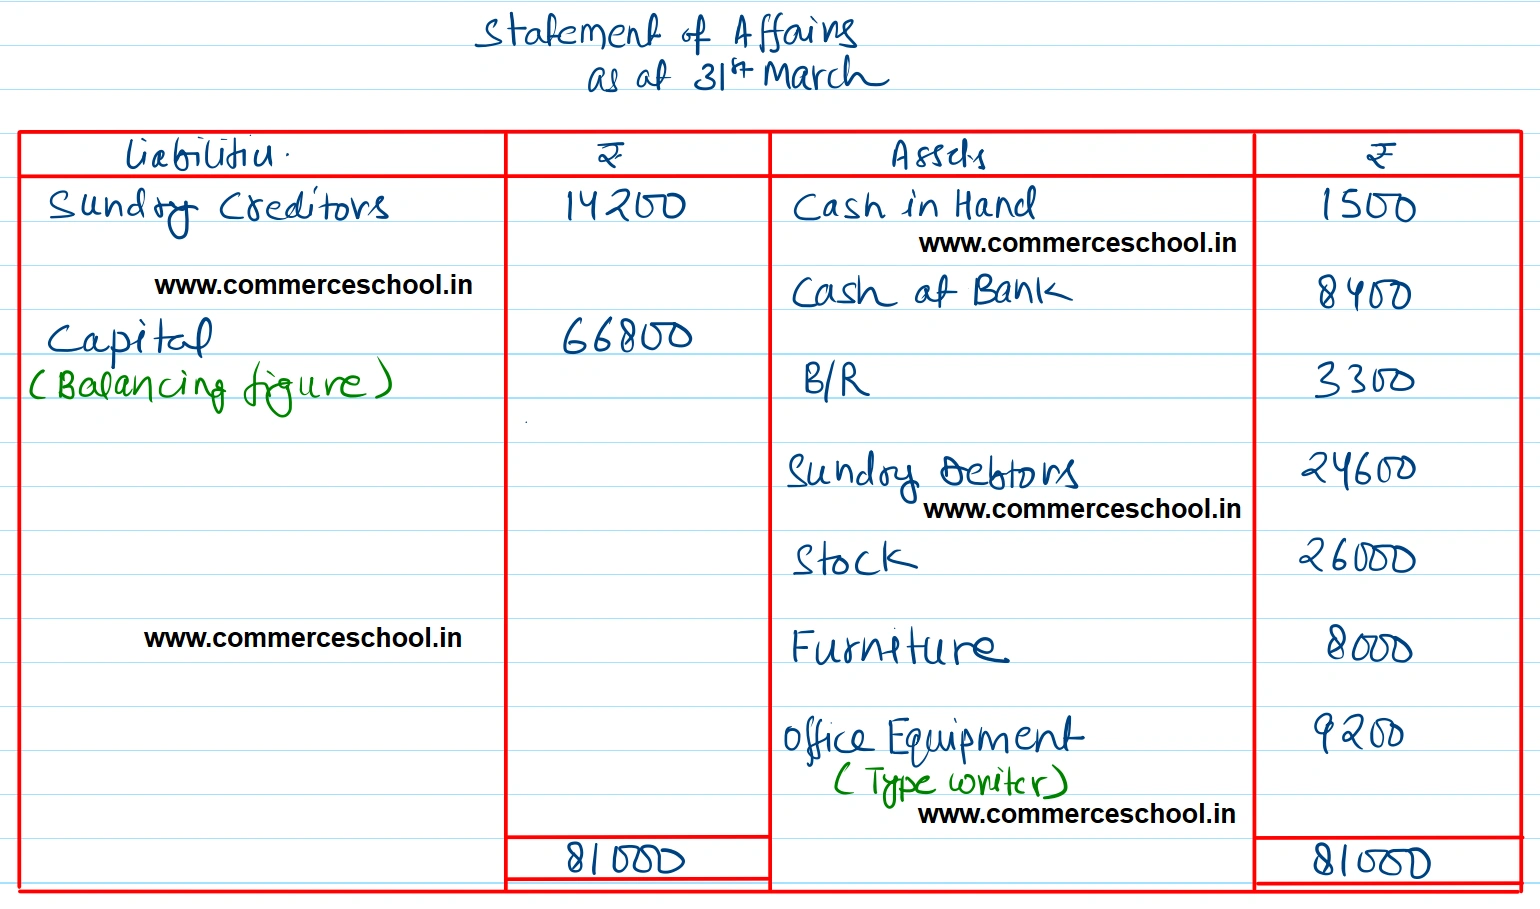 Statement of Affairs
as at 31st March
Liabilities ₹ Assets ₹
Sundry Creditors 14200 Cash in Hand 1500
www.commerceschool.in
www.commerceschool.in
Cash at Bank 8400
Capital 66800
(Balancing figure)
B/R 3300
Sundry Debtors 24600
www.commerceschool.in
Stock 26000
www.commerceschool.in
Furniture 8000
Office Equipment 9200
(Type writer)
www.commerceschool.in
81000 81000